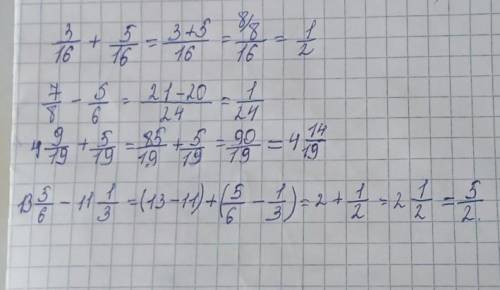 3/16 + 5/16 = (3+5)/16 = 8/8/16 = 1/2
7/8 - 5/6 = (21-20)/24 = 1/24
4 9/19 + 5/19 = 85/19 + 5/19 = 90/19 = 4 14/19
13 5/6 - 11 1/3 = (13-11) + (5/6 - 1/3) = 2 + 1/2 = 2 1/2 = 5/2.